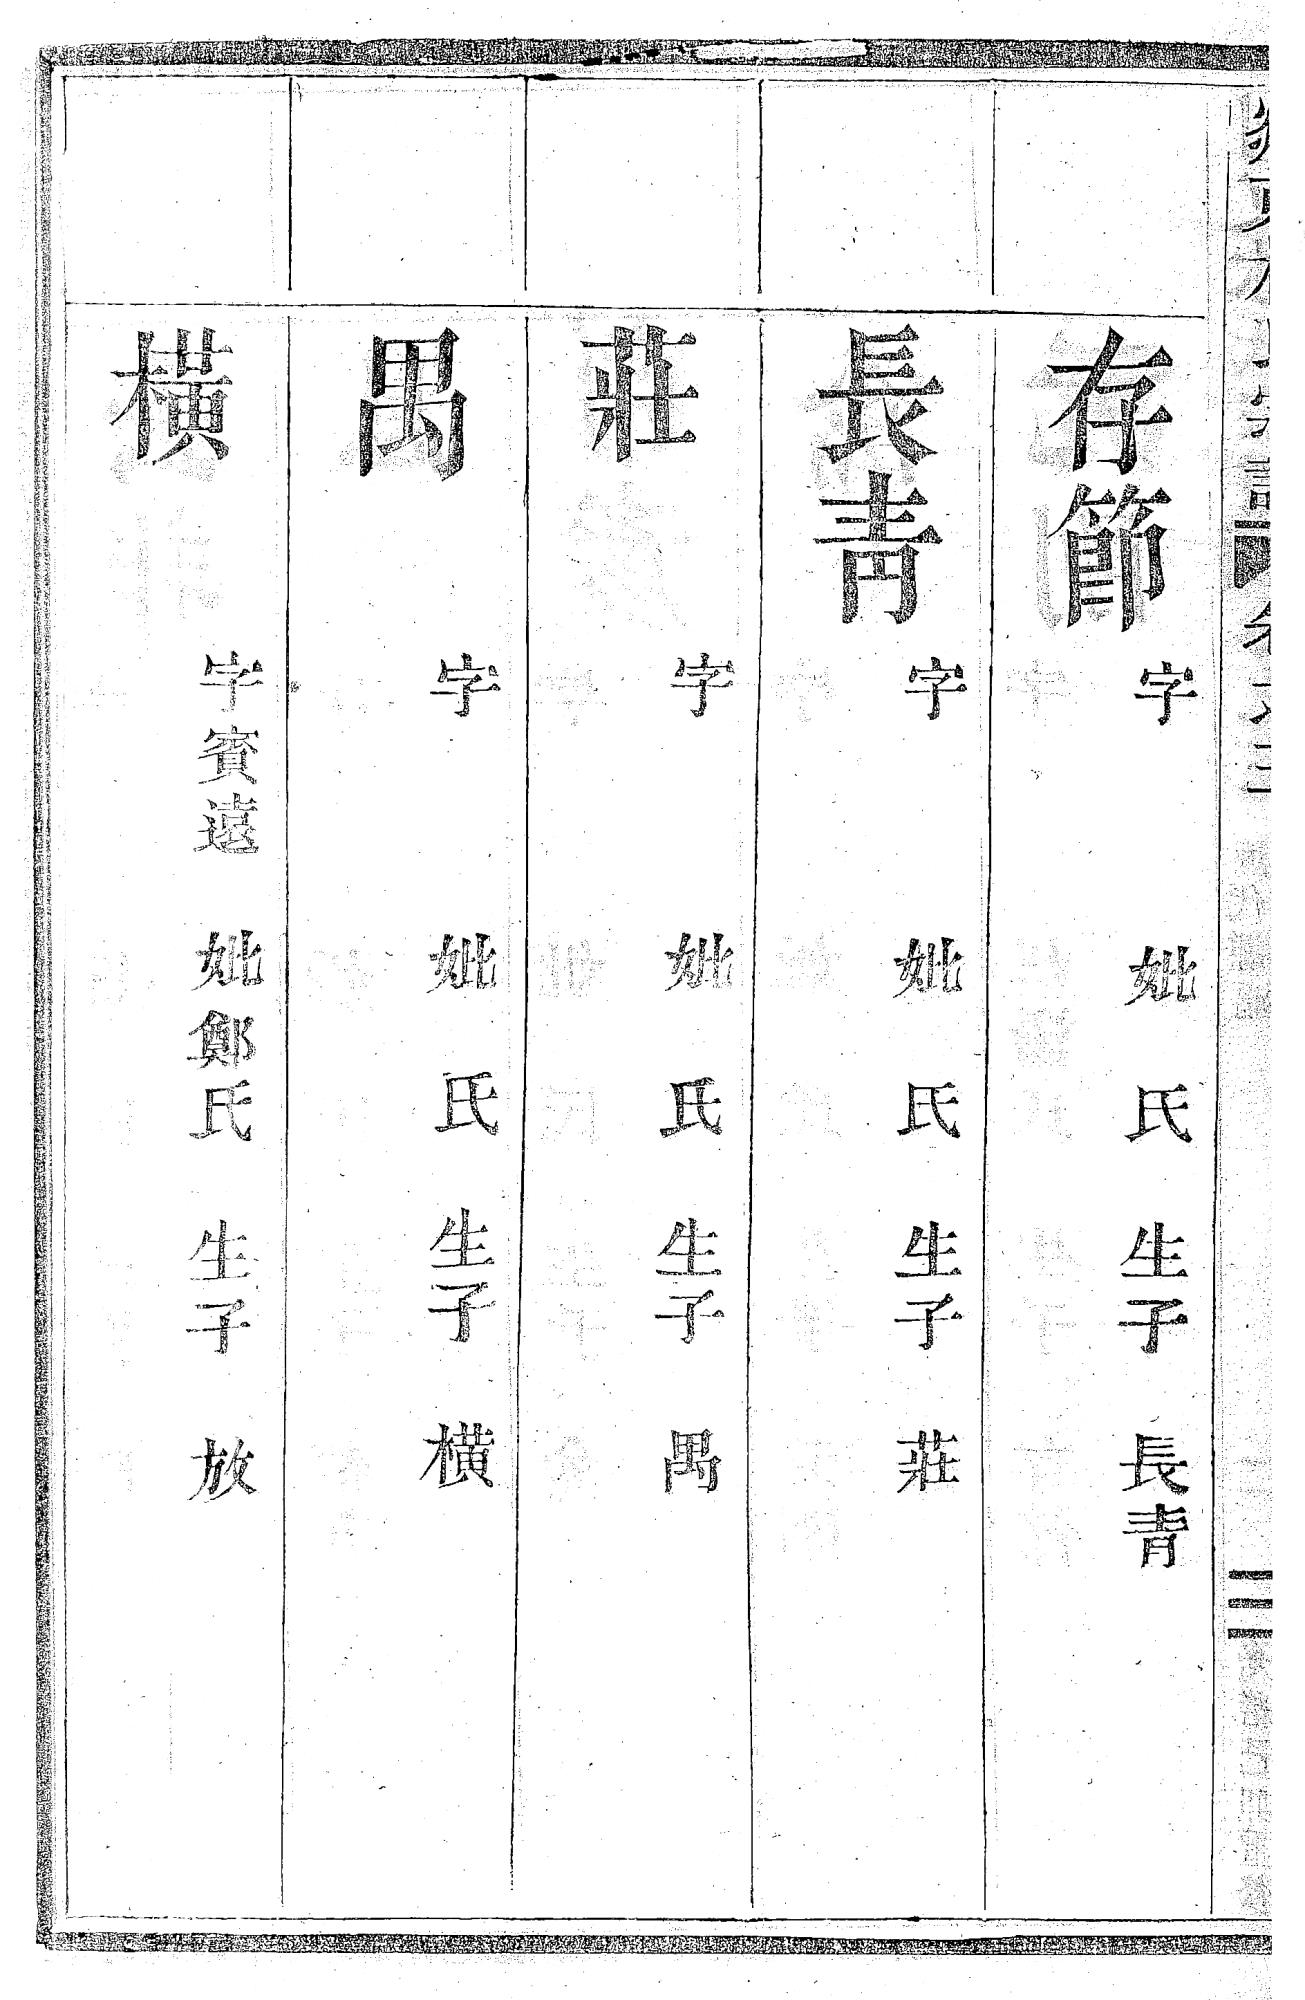 存節 字 妣 氏 生子 長青
長青 字 妣 氏 生子 莊
莊 字 妣 氏 生子 禺
禺 字 妣 氏 生子 橫
橫 字賓遠 妣鄭氏 生子 放